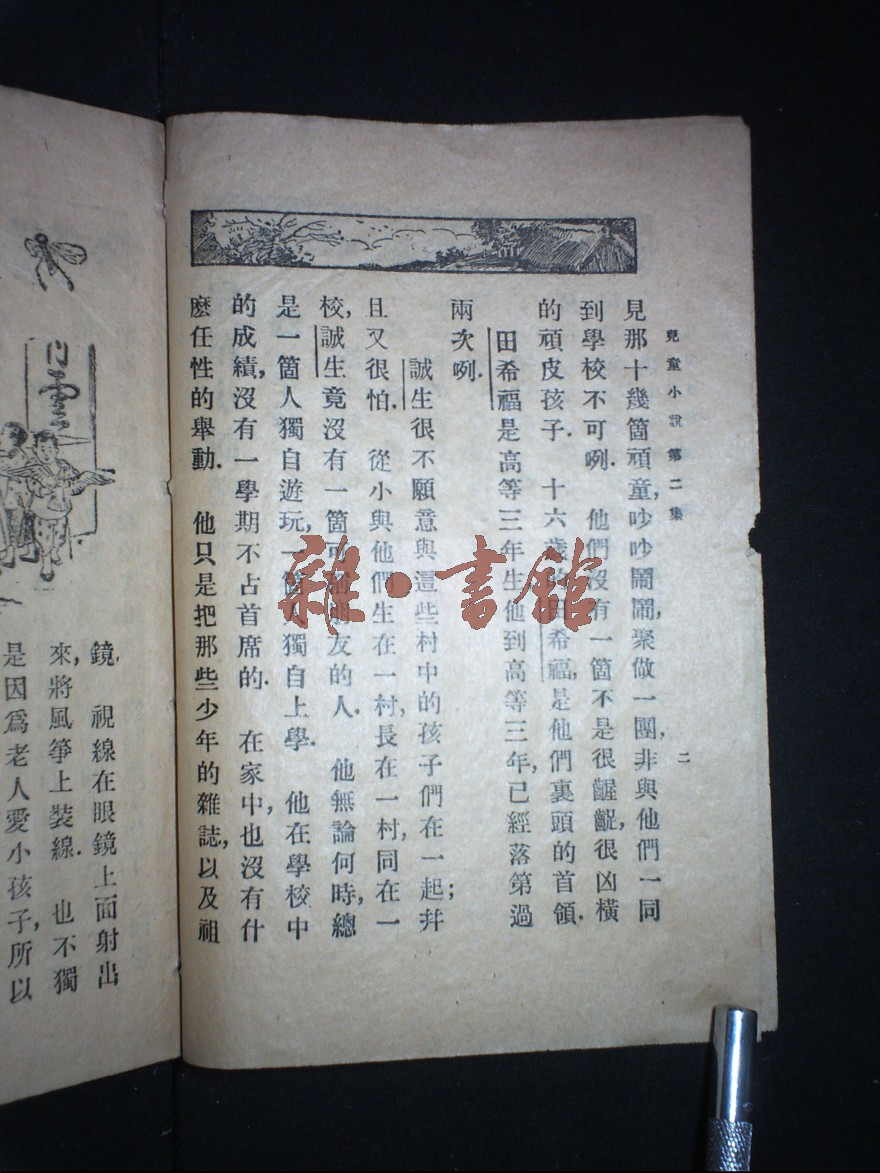 兒童小說第二集
二
見那十幾箇頑童,吵吵鬧鬧,聚做一團,非與他們一同
到學校不可咧. 他們沒有一箇不是很齷齪,很凶橫
的頑皮孩子. 十六歲的田希福,是他們裏頭的首領.
田希福是高等三年生他到高等三年,已經落第過
兩次咧.
誠生很不願意與這些村中的孩子們在一起;幷
且又很怕. 從小與他們生在一村,長在一村,同在一
校,誠生竟沒有一箇可稱朋友的人. 他無論何時,總
是一箇人獨自遊玩,一箇人獨自上學. 他在學校中
的成績,沒有一學期不占首席的. 在家中,也沒有什
麽任性的舉動. 他只是把那些少年的雜誌,以及祖
雜·書館
雲
鏡. 視線在眼鏡上面射出
來,將風箏上裝線. 也不獨
是因爲老人愛小孩子,所以